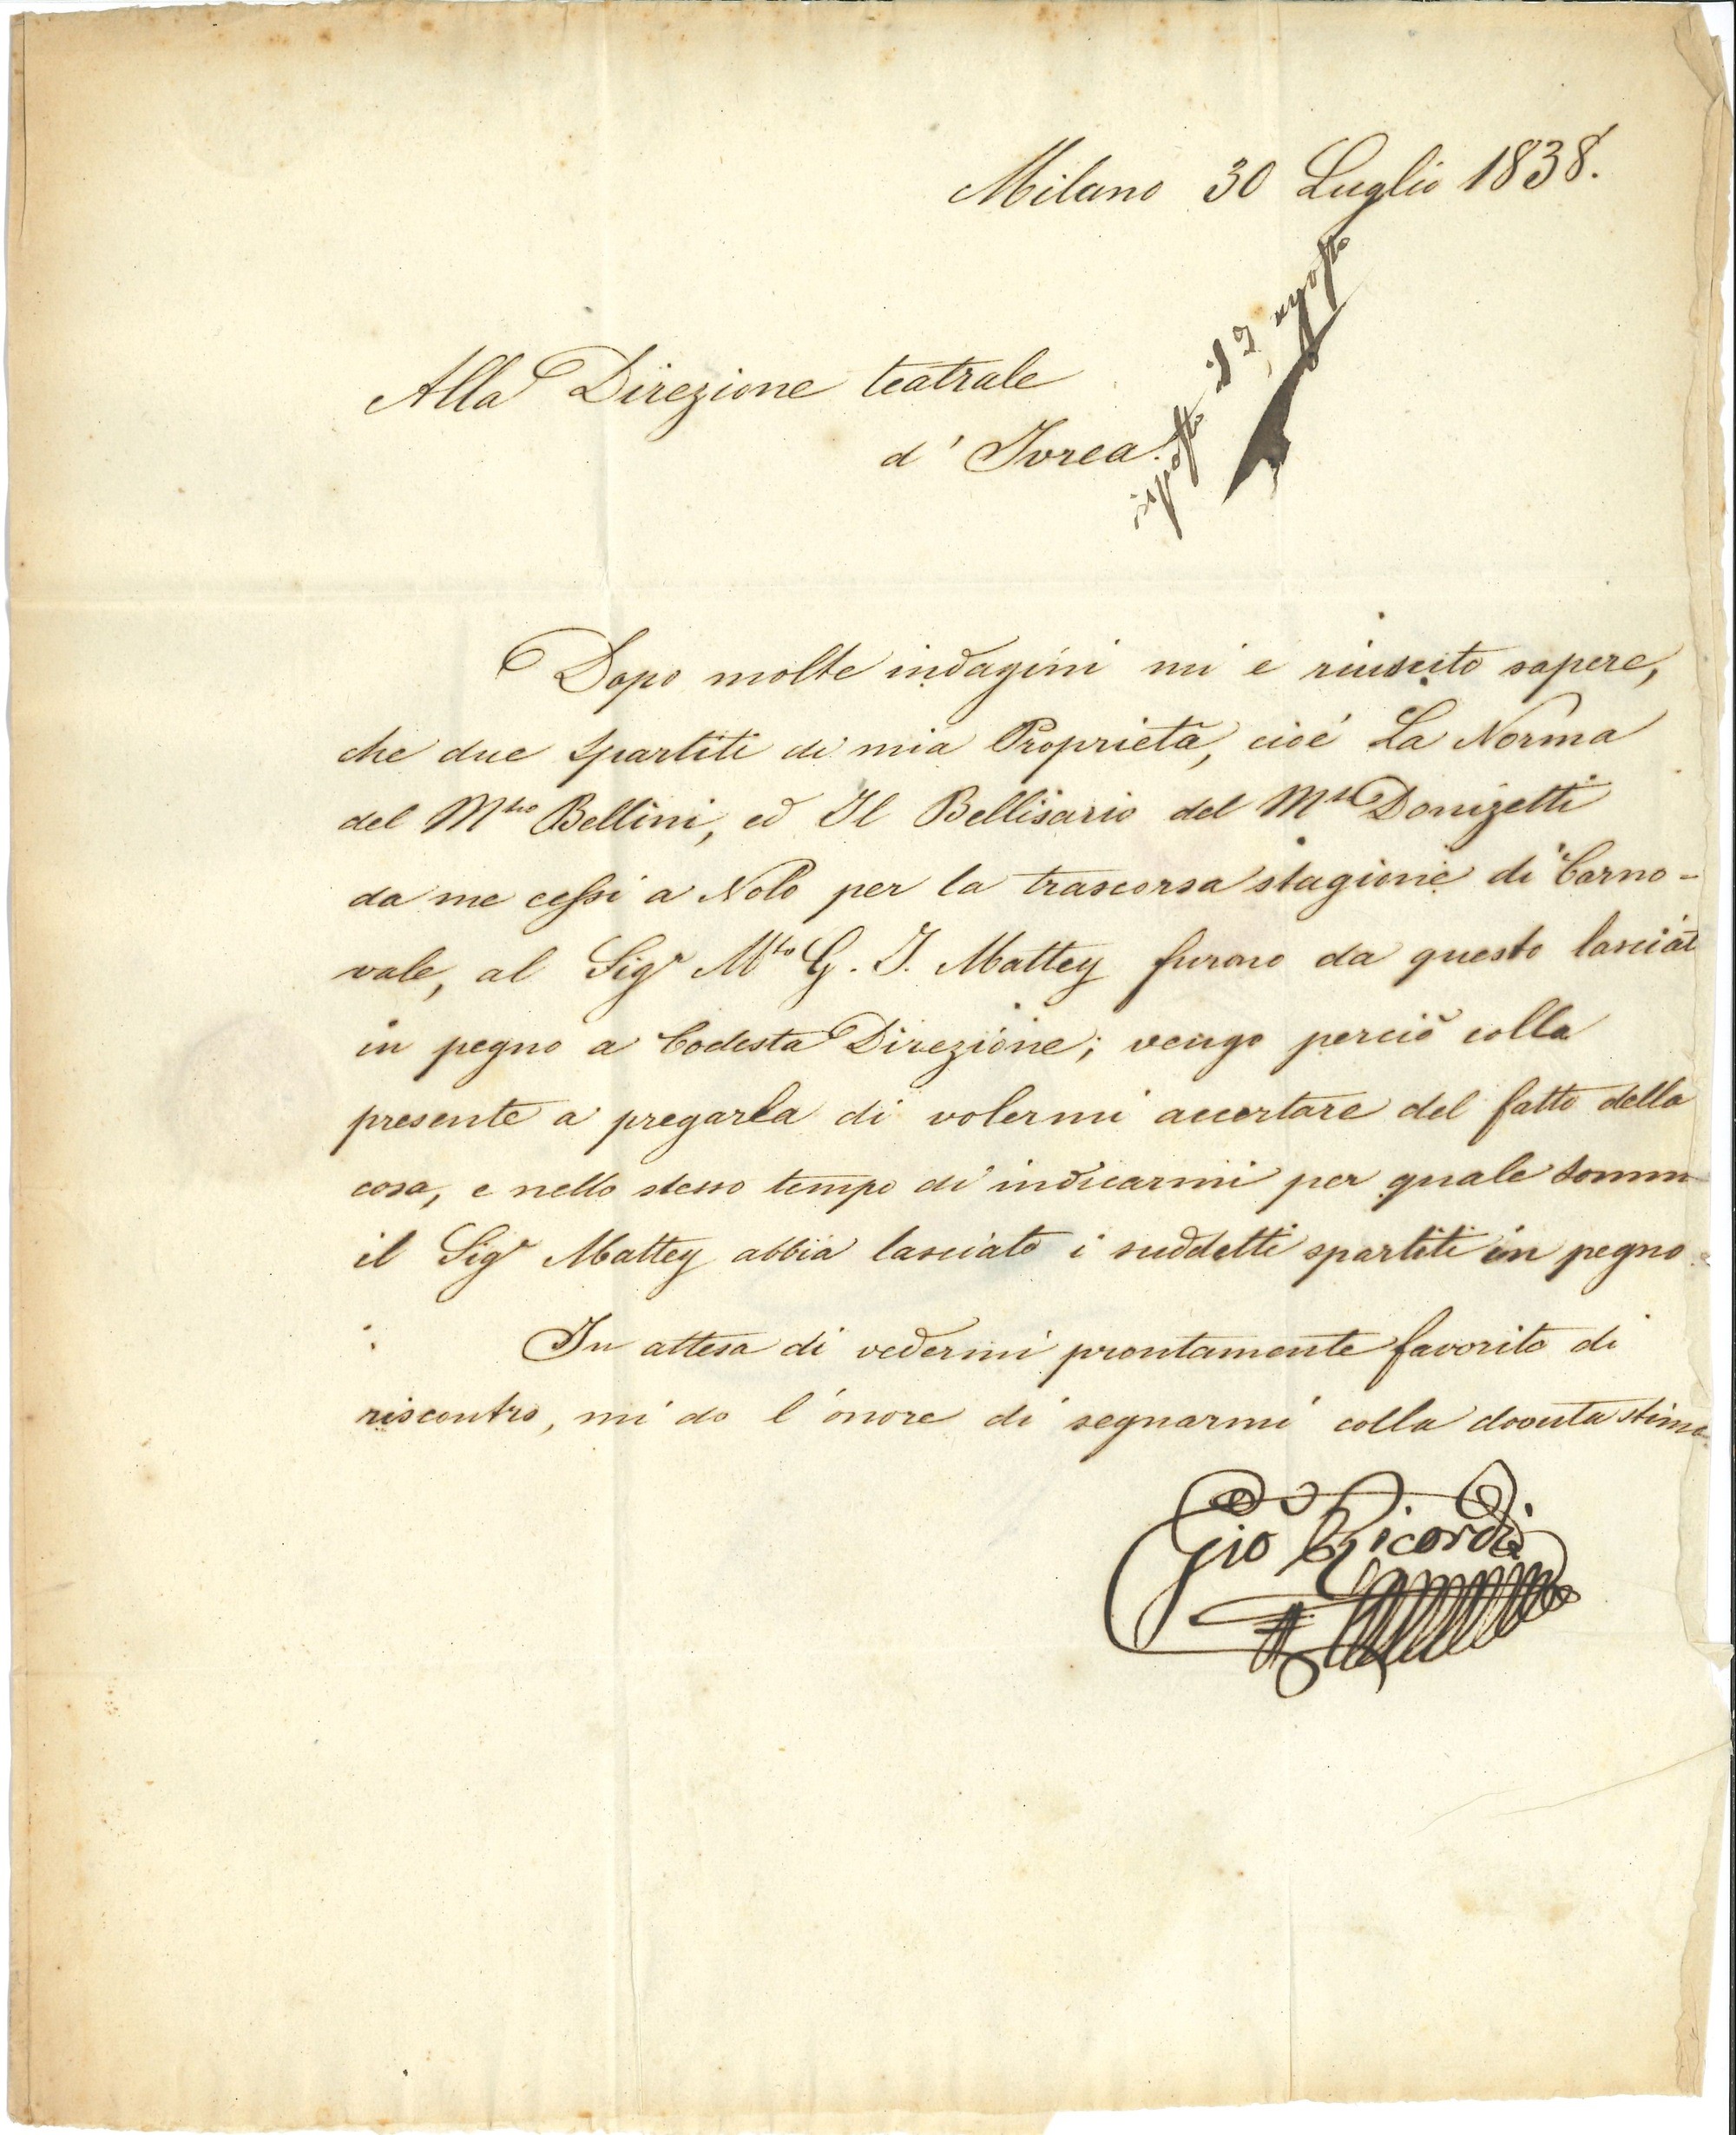 Milano 30 Luglio 1838.
risposto il 2 agosto
Alla Direzione teatrale
d' Ivrea.
Dopo molte indagini mi e riuscito sapere,
che due spartiti di mia Proprietà, cioé La Norma
del Mtro Bellini, ed Il Bellisario del Mtro Donizetti
da me cessi a Nolo per la trascorsa stagione di Carno-
vale, al Sigr Mtro G. I. Mattey furono da questo lasciat
in pegno a Codesta Direzione; vengo perciò colla
presente a pregarla di volermi accertare del fatto della
cosa, e nello stesso tempo di indicarmi per quale somm
il Sigr Mattey abbia lasciato i suddetti spartiti in pegno
In attesa di vedermi prontamente favorito di
riscontro, mi do l'onore di segnarmi colla dovuta stima
Gio Ricordi